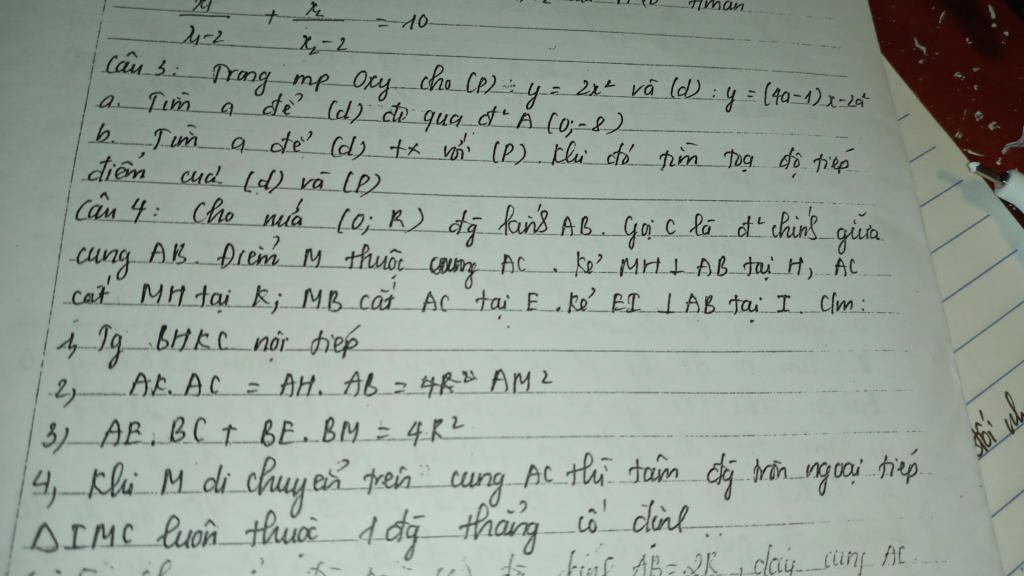 x1/(x1-2) + x2/(x2-2) = 10
Câu 3: Trong mp Oxy cho (P): y = 2x² và (d): y = (4a-1)x-2a²
a. Tìm a để (d) đi qua đ² A (0;-8)
b. Tìm a để (d) tx với (P). Khi đó tìm toạ độ tiếp
điểm của (d) và (P)
Câu 4: Cho nửa (O; R) đg kính AB. Gọi C là đ² chính giữa
cung AB. Điểm M thuộc cung AC. Kẻ MH ⊥ AB tại H, AC
cắt MH tại K; MB cắt AC tại E. Kẻ EI ⊥ AB tại I. C/m:
1, Tg BHKC nội tiếp
2, AK.AC = AH.AB = AM²
3) AE.BC + BE.BM = 4R²
4, Khi M di chuyển trên cung AC thì tâm đg tròn ngoại tiếp
ΔIMC luôn thuộc 1 đg thẳng cố định
kính AB = 2R, dây cung AC